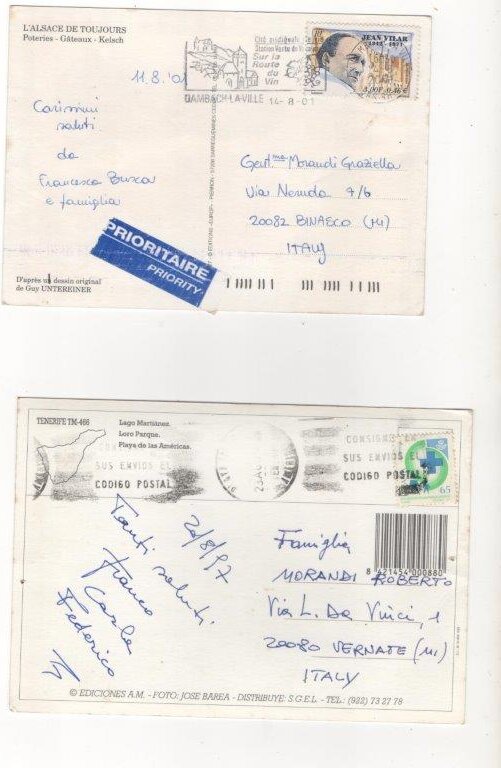 L'ALSACE DE TOUJOURS
Poteries - Gâteaux - Kelsch
11.8.'01
Carissimi
saluti
da
Francesca
e famiglia
PRIORITAIRE
PRIORITY
D'après un dessin original
de Guy UNTEREINER
Sur la
Route
du
Vin
DAMBACH-LA-VILLE 14-8-01
JEAN VILAR
1912-1971
3,00F-0,46€
Gent.ma Morandi Graziella
Via Neruda 7/6
20082 BINASCO (MI)
ITALY
TENERIFE TM-466
Lago Martiánez.
Loro Parque.
Playa de las Américas.
CONSIGNE EN
SUS ENVIOS EL
CODIGO POSTAL
CONSIGNE EN
SUS ENVIOS EL
CODIGO POSTAL
65
Tanti saluti
Franco
Carla
Federico
8 421454 000880
Famiglia
MORANDI ROBERTO
Via L. Da Vinci, 1
20080 VERNATE (MI)
ITALY
© EDICIONES A.M. - FOTO: JOSE BAREA - DISTRIBUYE: S.G.E.L. - TEL.: (922) 73 27 78